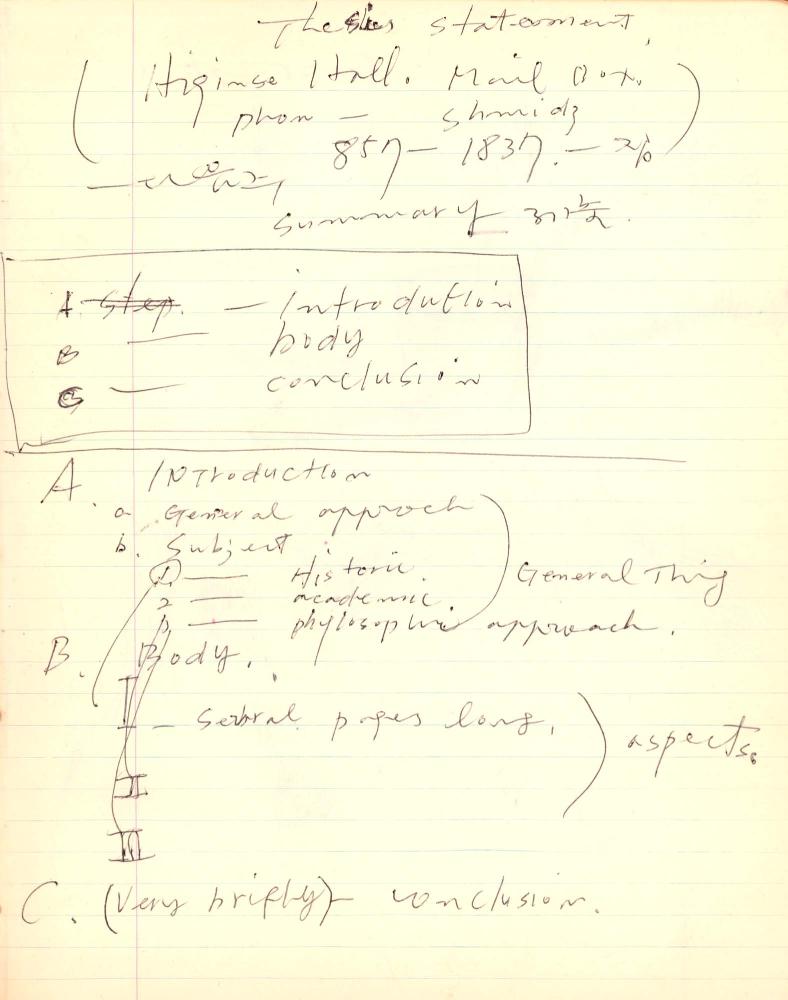 Thesies stateoment,
(Higinse Hall. Mail Box.
phon — Shmidz
857 — 1837. — 과
— 다음주,
Summary 제출.
A. step. — introdution
B — body
C — conclusion
A. INTroduction
a. General approch
b. Subject
① — Historic. General Thig
2 — academic.
3 — phylosophic approach.
B. Body.
I — Sebral pages long, aspects.
II
III
C. (Very brifly) — conclusion.